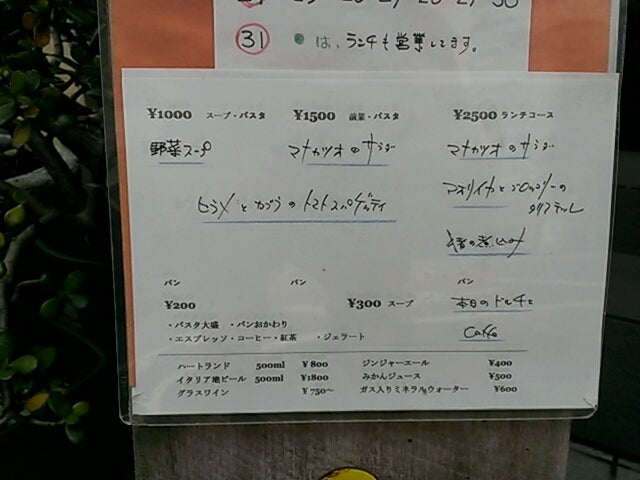 31
は、ランチも営業してます。
¥1000 スープ・パスタ
¥1500 前菜・パスタ
¥2500 ランチコース
野菜スープ
マナガツオのサラダ
マナガツオのサラダ
ヒラメとカブラのトマトスパゲッティ
アオリイカとブロッコリーの
タリアテッレ
の煮込み
パン
パン
パン
¥200
¥300 スープ
本日のドルチェ
・パスタ大盛 ・パンおかわり
・エスプレッソ・コーヒー・紅茶 ・ジェラート
Caffe
ハートランド 500ml ¥800
ジンジャーエール ¥400
イタリア地ビール 500ml ¥1800
みかんジュース ¥500
グラスワイン ¥750~
ガス入りミネラルウォーター ¥600